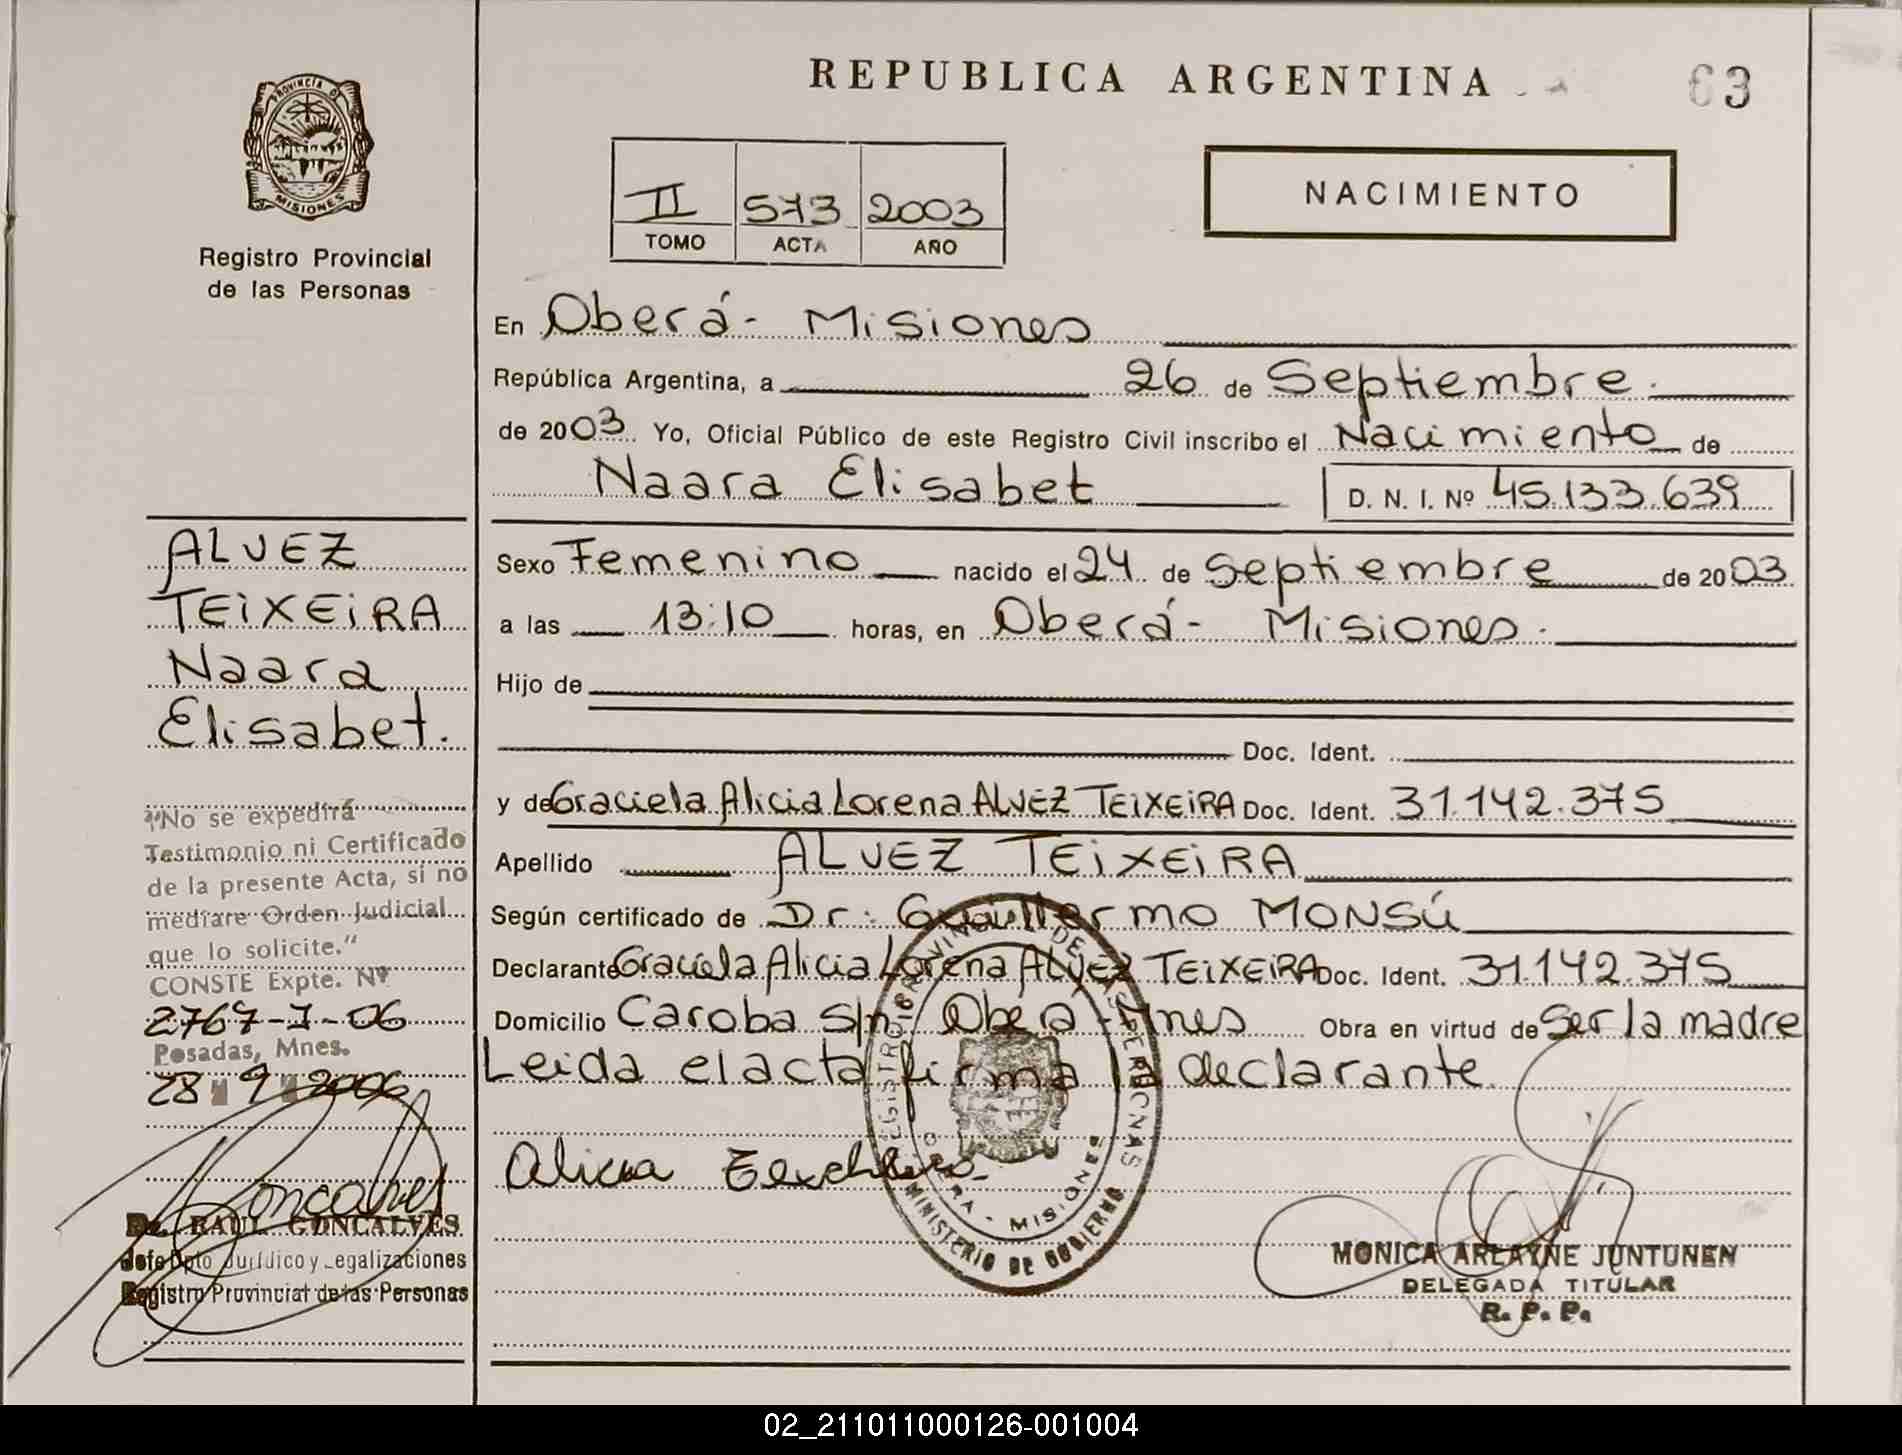 REPUBLICA ARGENTINA
63
PROVINCIA DE
MISIONES
Registro Provincial
de las Personas
II 573 2003
TOMO ACTA AÑO
NACIMIENTO
En Oberá - Misiones
República Argentina, a 26 de Septiembre.
de 2003. Yo, Oficial Público de este Registro Civil inscribo el Nacimiento de
Naara Elisabet D. N. I. Nº 45.133.639
Sexo Femenino nacido el 24 de Septiembre de 2003
a las 13:10 horas, en Oberá - Misiones.
Hijo de
Doc. Ident.
y de Graciela Alicia Lorena ALVEZ TEIXEIRA Doc. Ident. 31.142.375
Apellido ALVEZ TEIXEIRA
Según certificado de Dr. Guillermo MONSÚ
Declarante Graciela Alicia Lorena ALVEZ TEIXEIRA Doc. Ident. 31.142.375
Domicilio Caroba s/n Oberá - Mnes Obra en virtud de Ser la madre
Leida el acta firma la declarante.
Alicia
REGISTRO PROVINCIAL DE LAS PERSONAS
OBERA - MISIONES
MINISTERIO DE GOBIERNO
MONICA ARLAYNE JUNTUNEN
DELEGADA TITULAR
R. P. P.
ALVEZ
TEIXEIRA
Naara
Elisabet.
"No se expedirá
Testimonio ni Certificado
de la presente Acta, si no
mediare Orden Judicial
que lo solicite."
CONSTE Expte. Nº
2767-J-06
Posadas, Mnes.
28 9 2006
Goncalves
Dr. RAUL GONCALVES
Jefe Dpto Jurídico y Legalizaciones
Registro Provincial de las Personas
02_211011000126-001004